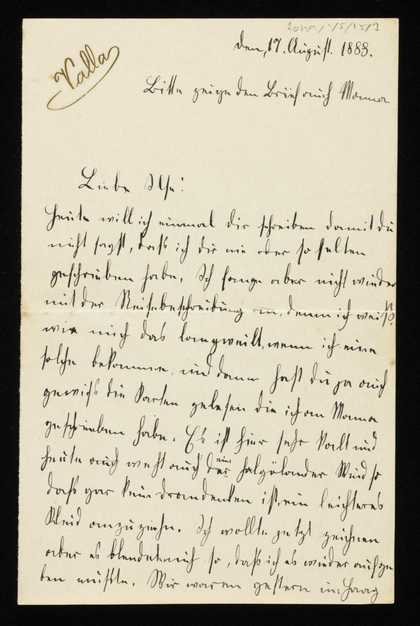 Valla
den, 17. August. 1888.
Bitte zeige den Brief auch Mama
Liebe Ilse!
Heute will ich einmal dir schreiben damit du
nicht sagst, daß ich dir nie oder so selten
geschrieben habe. Ich fange aber nicht wieder
mit der Reisebeschreibung an, denn ich weiß
wie mich das langweilt, wenn ich eine
solche bekomme, und dann hast du ja auch
gewiß die Karten gelesen die ich an Mama
geschrieben habe. Es ist hier sehr kalt und
heute auch weht auch ein Helgoländer Wind so
daß gar kein drandenken ist, ein leichteres
Kleid anzuziehn. Ich wollte jetzt zeichnen
aber es blendete mich so, daß ich es wieder aufge
ben mußte. Wir waren gestern im Haag